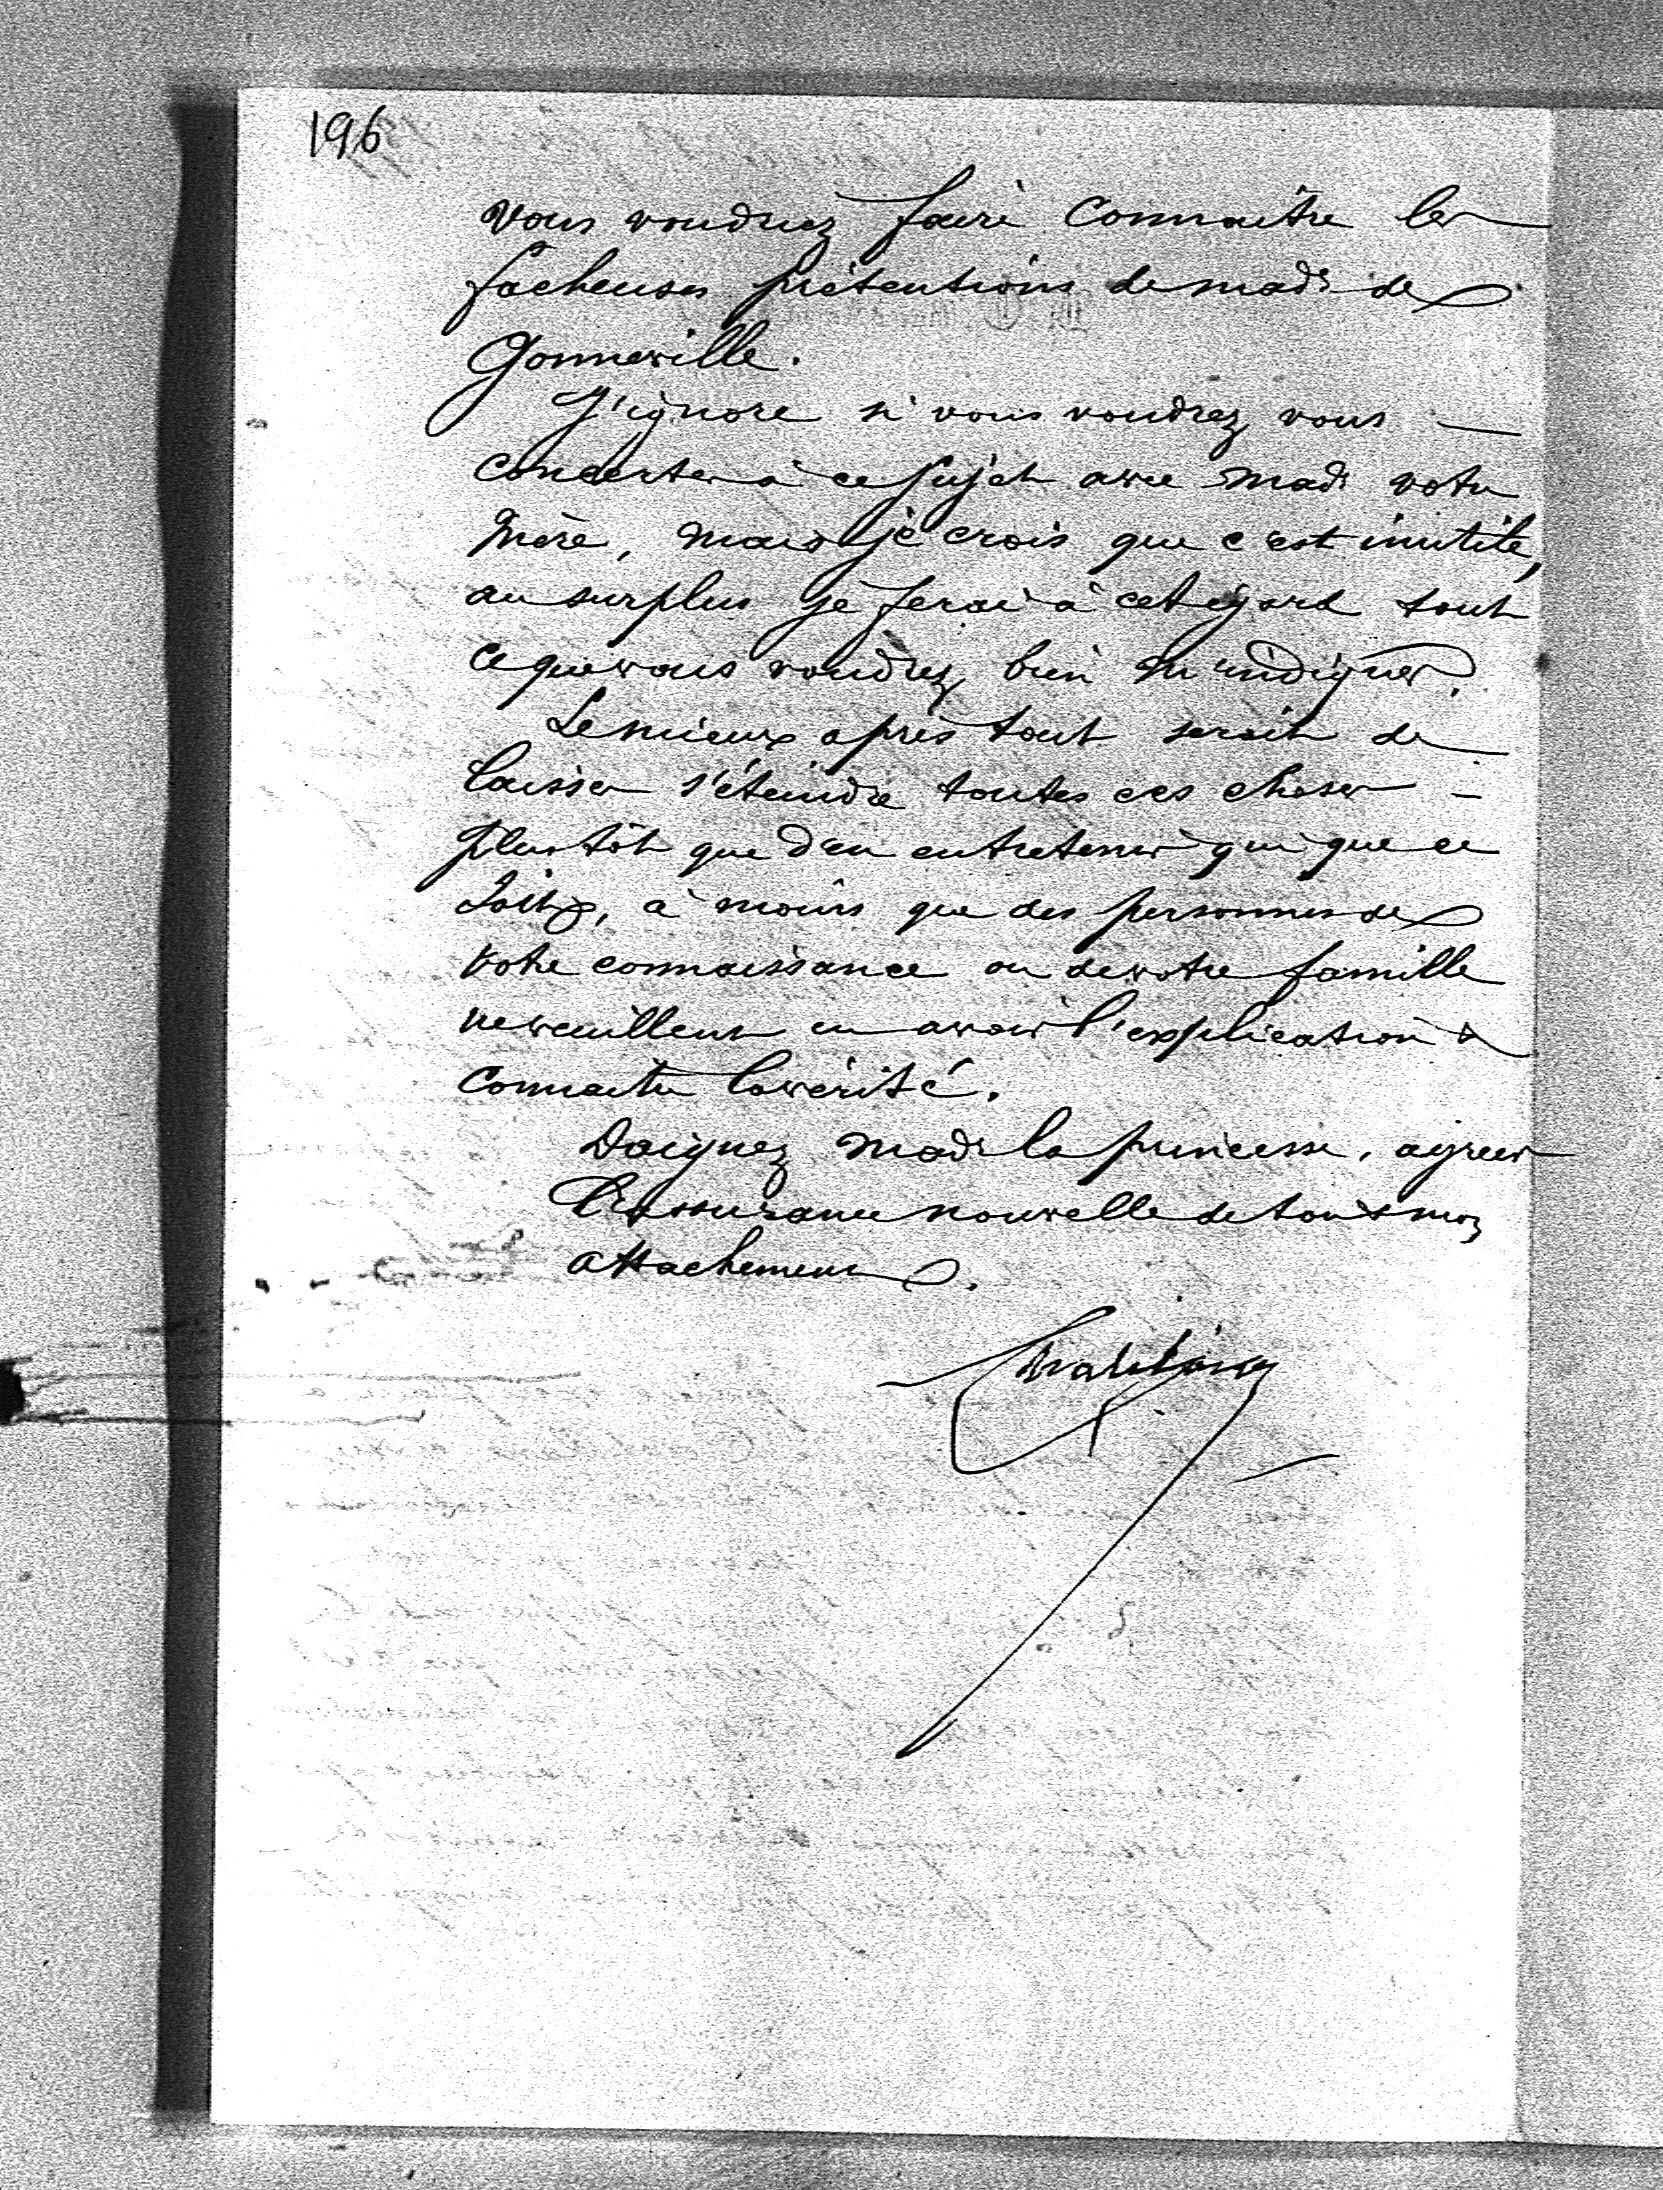 196
vous voudriez faire connaitre les
facheuses prétentions de made de
Gonneville.
J'ignore si vous voudrez vous
concerter à ce sujet avec made votre
mère, mais je crois que c'est inutile,
au surplus je ferai à cet égard tout
ce que vous voudrez bien m'indiquer.
Le mieux après tout serait de
laisser s'éteindre toutes ces choses
plus tôt que d'en entretenir qui que ce
soit, à moins que des personnes de
votre connaissance ou de votre famille
ne veuillent en avoir l'explication &
connaitre la vérité.
Daignez made la princesse, agréer
l'assurance nouvelle de tout mon
attachement.